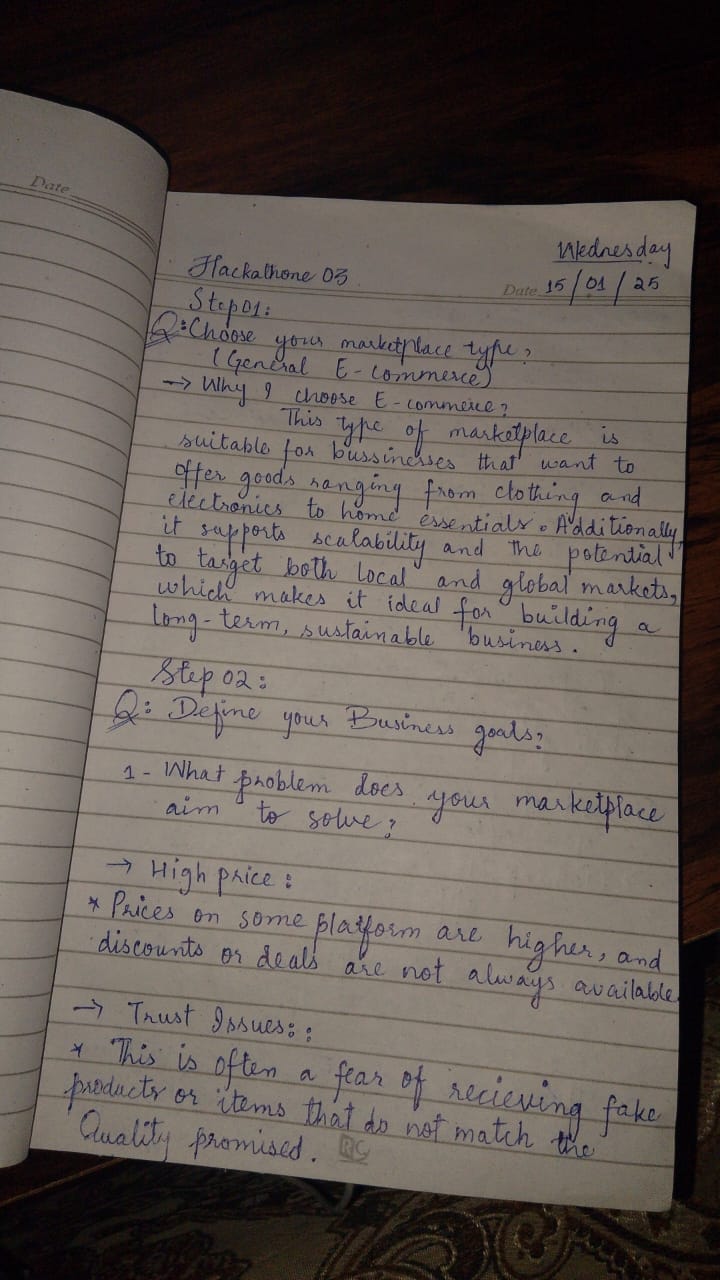 Date
Wednesday
Hackathone 03
Date 15/01/25
Step01:
Q:Choose your marketplace type?
(General E-commerce)
→ Why I choose E-commerce?
This type of marketplace is
suitable for bussinesses that want to
offer goods ranging from clothing and
electronics to home essentials. Additionally,
it supports scalability and the potential
to target both local and global markets,
which makes it ideal for building a
long-term, sustainable business.
Step 02:
Q: Define your Business goals?
1- What problem does your marketplace
aim to solve?
→ High price:
* Prices on some platform are higher, and
discounts or deals are not always available
→ Trust Issues::
* This is often a fear of recieving fake
products or items that do not match the
Quality promised.
RC